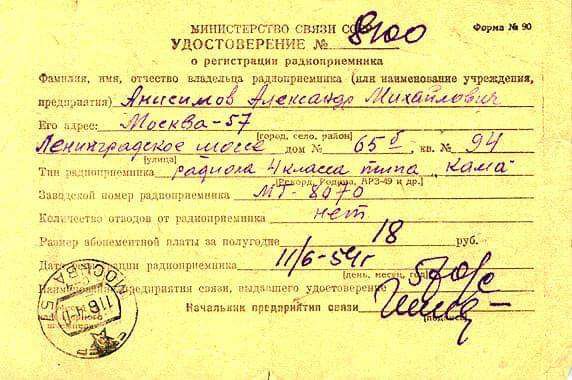 МИНИСТЕРСТВО СВЯЗИ СССР
Форма № 90
УДОСТОВЕРЕНИЕ № 8400
о регистрации радиоприемника
Фамилия, имя, отчество владельца радиоприемника (или наименование учреждения,
предприятия) Анисимов Александр Михайлович
Его адрес: Москва-57
(город, село, район)
Ленинградское шоссе дом № 65б кв. № 94
(улица)
Тип радиоприемника радиола 4 класса типа „Кама"
(Рекорд, Родина, АРЗ-49 и др.)
Заводской номер радиоприемника МТ-8970
Количество отводов от радиоприемника нет
Размер абонементной платы за полугодие 18 руб.
Дата регистрации радиоприемника 11/6-54г
(день, месяц, год)
Наименование предприятия связи, выдавшего удостоверение 57 о/с
Начальник предприятия связи
(подпись)
МОСКВА 57